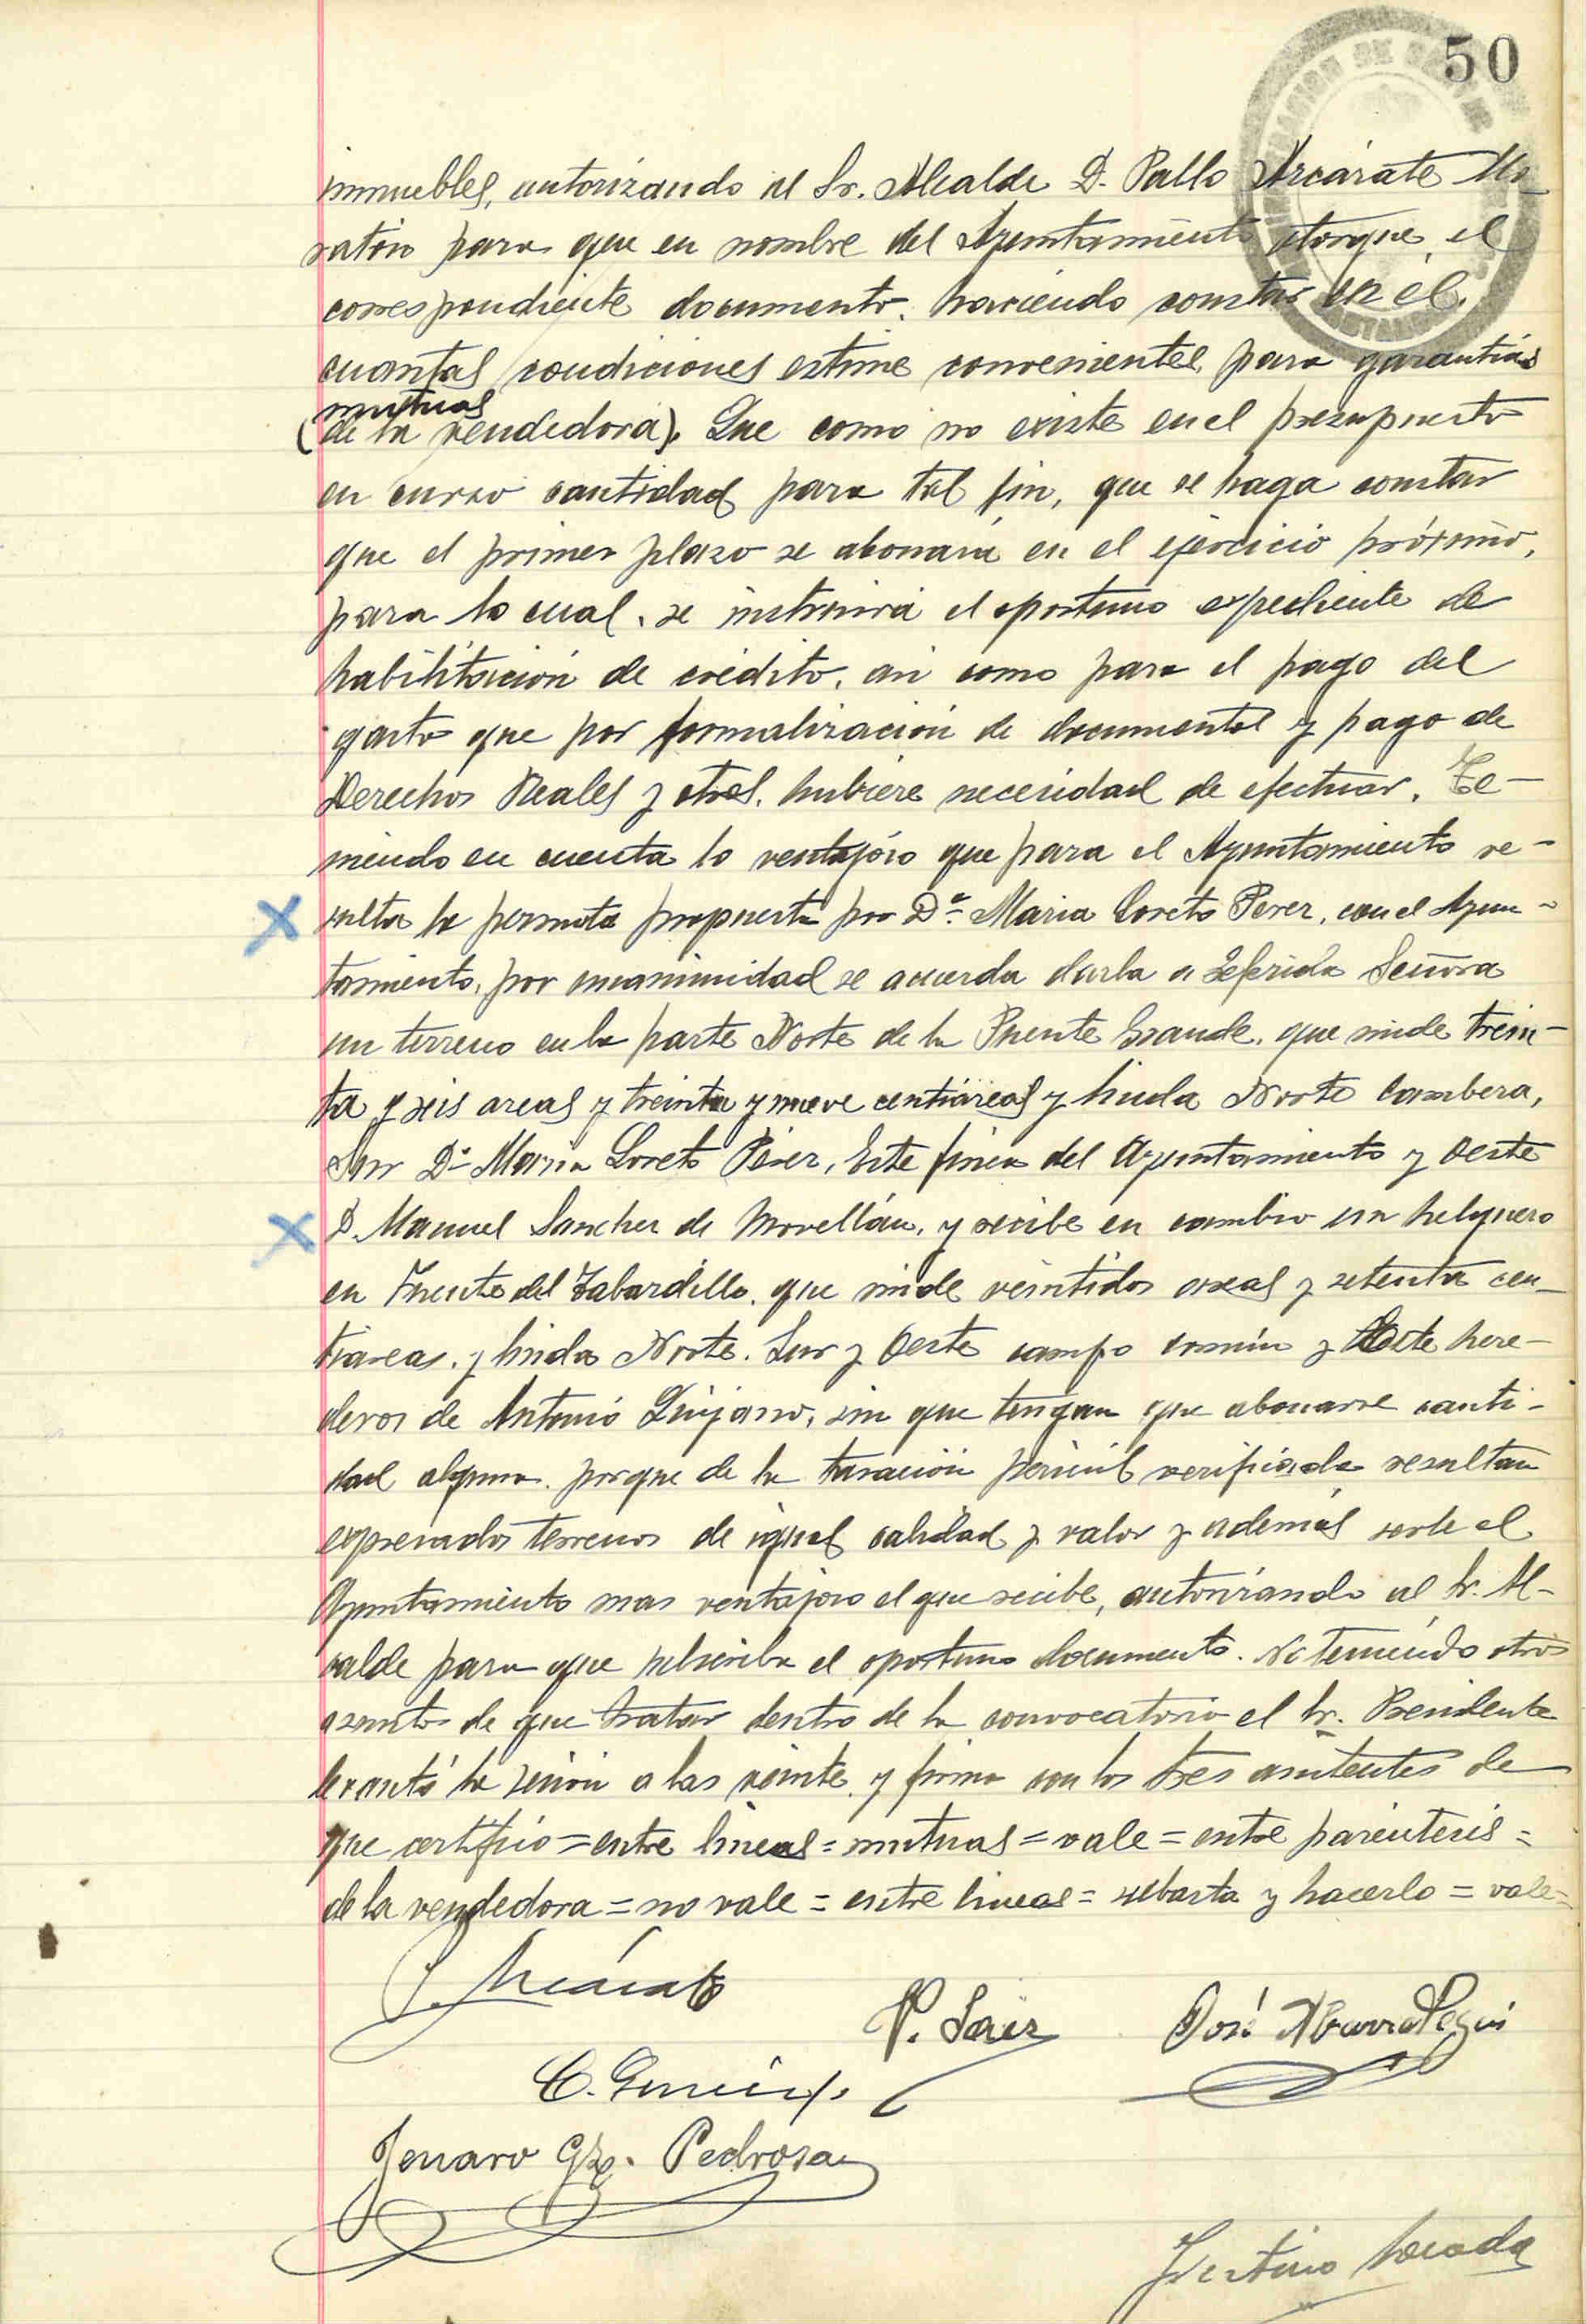 50
inmuebles, autorizando al Sr. Alcalde D. Pablo Arcárate Mo-
ratón para que en nombre del Ayuntamiento otorgue, el
correspondiente documento. haciendo constar en él.
cuantas condiciones estime convenientes, para garantías
mutuas
(de la vendedora). Que como no existe en el presupuesto
en curso cantidad para tal fin, que se haga constar
que el primer plazo se abonará en el ejercicio próximo,
para lo cual, se instruirá el oportuno expediente de
habilitación de crédito, asi como para el pago del
gasto que por formalización de documentos y pago de
Derechos Reales y otros, hubiere necesidad de efectuar. Te-
niendo en cuenta lo ventajóso que para el Ayuntamiento re-
sulta la permuta propuesta por Dª. Maria Loreto Perez, con el Ayun-
tamiento, por unanimidad se acuerda darla a referida Señora
un terreno en la parte Norte de la Puente Grande, que mide trein-
ta y seis areas y treinta y nueve centiáreas y linda Norte Cambera,
Sur Dª Maria Loreto Pérez, Este finca del Ayuntamiento y Oeste
D. Manuel Sanchez de Movellán, y recibe en cambio un helguero
en Fuente del Tabardillo, que mide veintidos areas y setenta cen-
tiareas, y linda Norte. Sur y Oeste campo común y Este here-
deros de Antonio Quijano, sin que tengan que abonarse canti-
dad alguna, porque de la tasación pericial verificada resultan
expresados terrenos de igual calidad y valor y además serle al
Ayuntamiento mas ventajoso el que recibe, autorizando al Sr. Al-
calde para que subscriba el oportuno documento. No teniendo otros
asuntos de que tratar dentro de la convocatoria el Sr. Presidente
levantó la sesión a las veinte, y firma con los tres asistentes de
que certifico = entre lineas = mutuas = vale = entre paréntesis =
de la vendedora = no vale = entre lineas = subasta y hacerlo = vale =
P. Arcárate
V. Saiz José
Jenaro Gz. Pedrosa